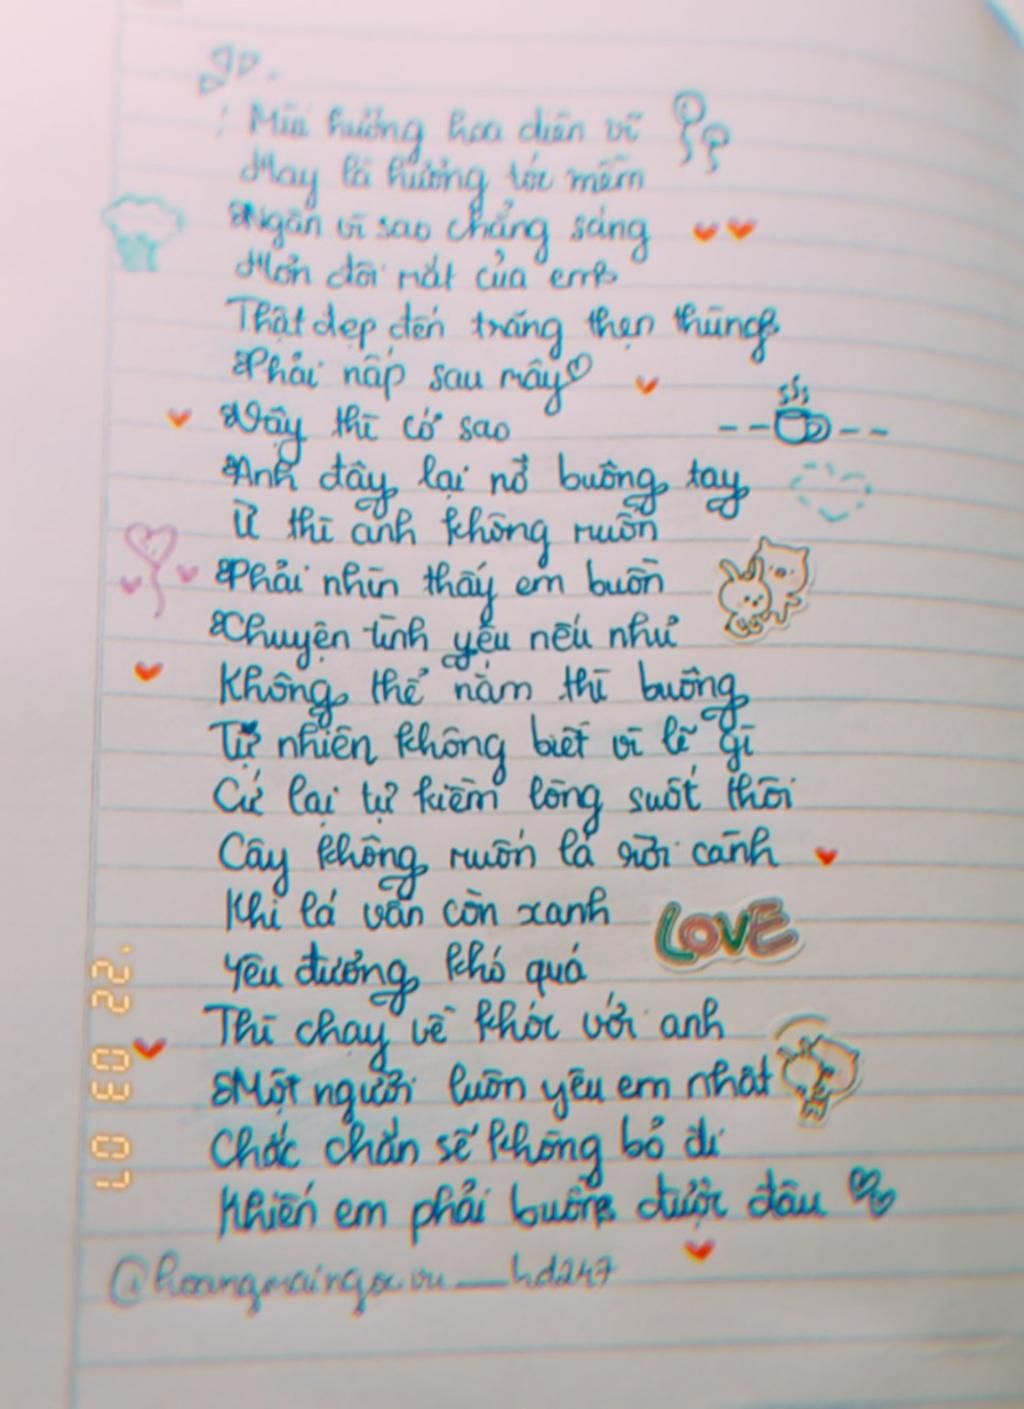 : Mùi hương hoa diên vĩ
Hay là hương tóc mềm
Ngàn vì sao chẳng sáng
Hơn đôi mắt của em
Thật đẹp đến trăng thẹn thùng
Phải nấp sau mây
Vậy thì cớ sao
Anh đây lại nỡ buông tay
Ừ thì anh không muốn
Phải nhìn thấy em buồn
Chuyện tình yêu nếu như
Không thể nắm thì buông
Tự nhiên không biết vì lẽ gì
Cứ lại tự kiềm lòng suốt thôi
Cây không muốn lá rời cành
Khi lá vẫn còn xanh
LOVE
Yêu đương khó quá
Thì chạy về khóc với anh
Một người luôn yêu em nhất
Chắc chắn sẽ không bỏ đi
Khiến em phải buồn được đâu
@hoangmaingoc.vu__hd247
07 03 '22